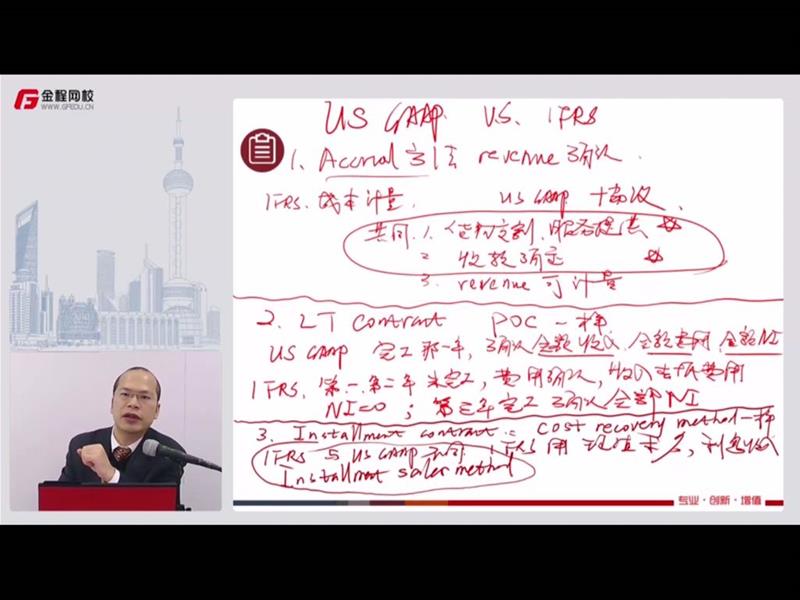 金程网校
WWW.GFEDU.CN
US GAAP VS. IFRS
1. Accrual 会计 revenue 确认.
IFRS. 成本计量. US GAAP
共同. 1. 服务提供
2. 收款确定
3. revenue 可计量
2. LT contract POC 一样
US GAAP 完工那一年, 确认全额收入, 全额费用, 全额NI
IFRS. 第一. 第二年未完工, 费用确认, 收入 费用
NI=0; 第三年完工确认全部NI
3. Installment contract: cost recovery method 一样
IFRS 与 US GAAP 不同 IFRS 用 现值 利息收入
Installment sales method
专业·创新·增值